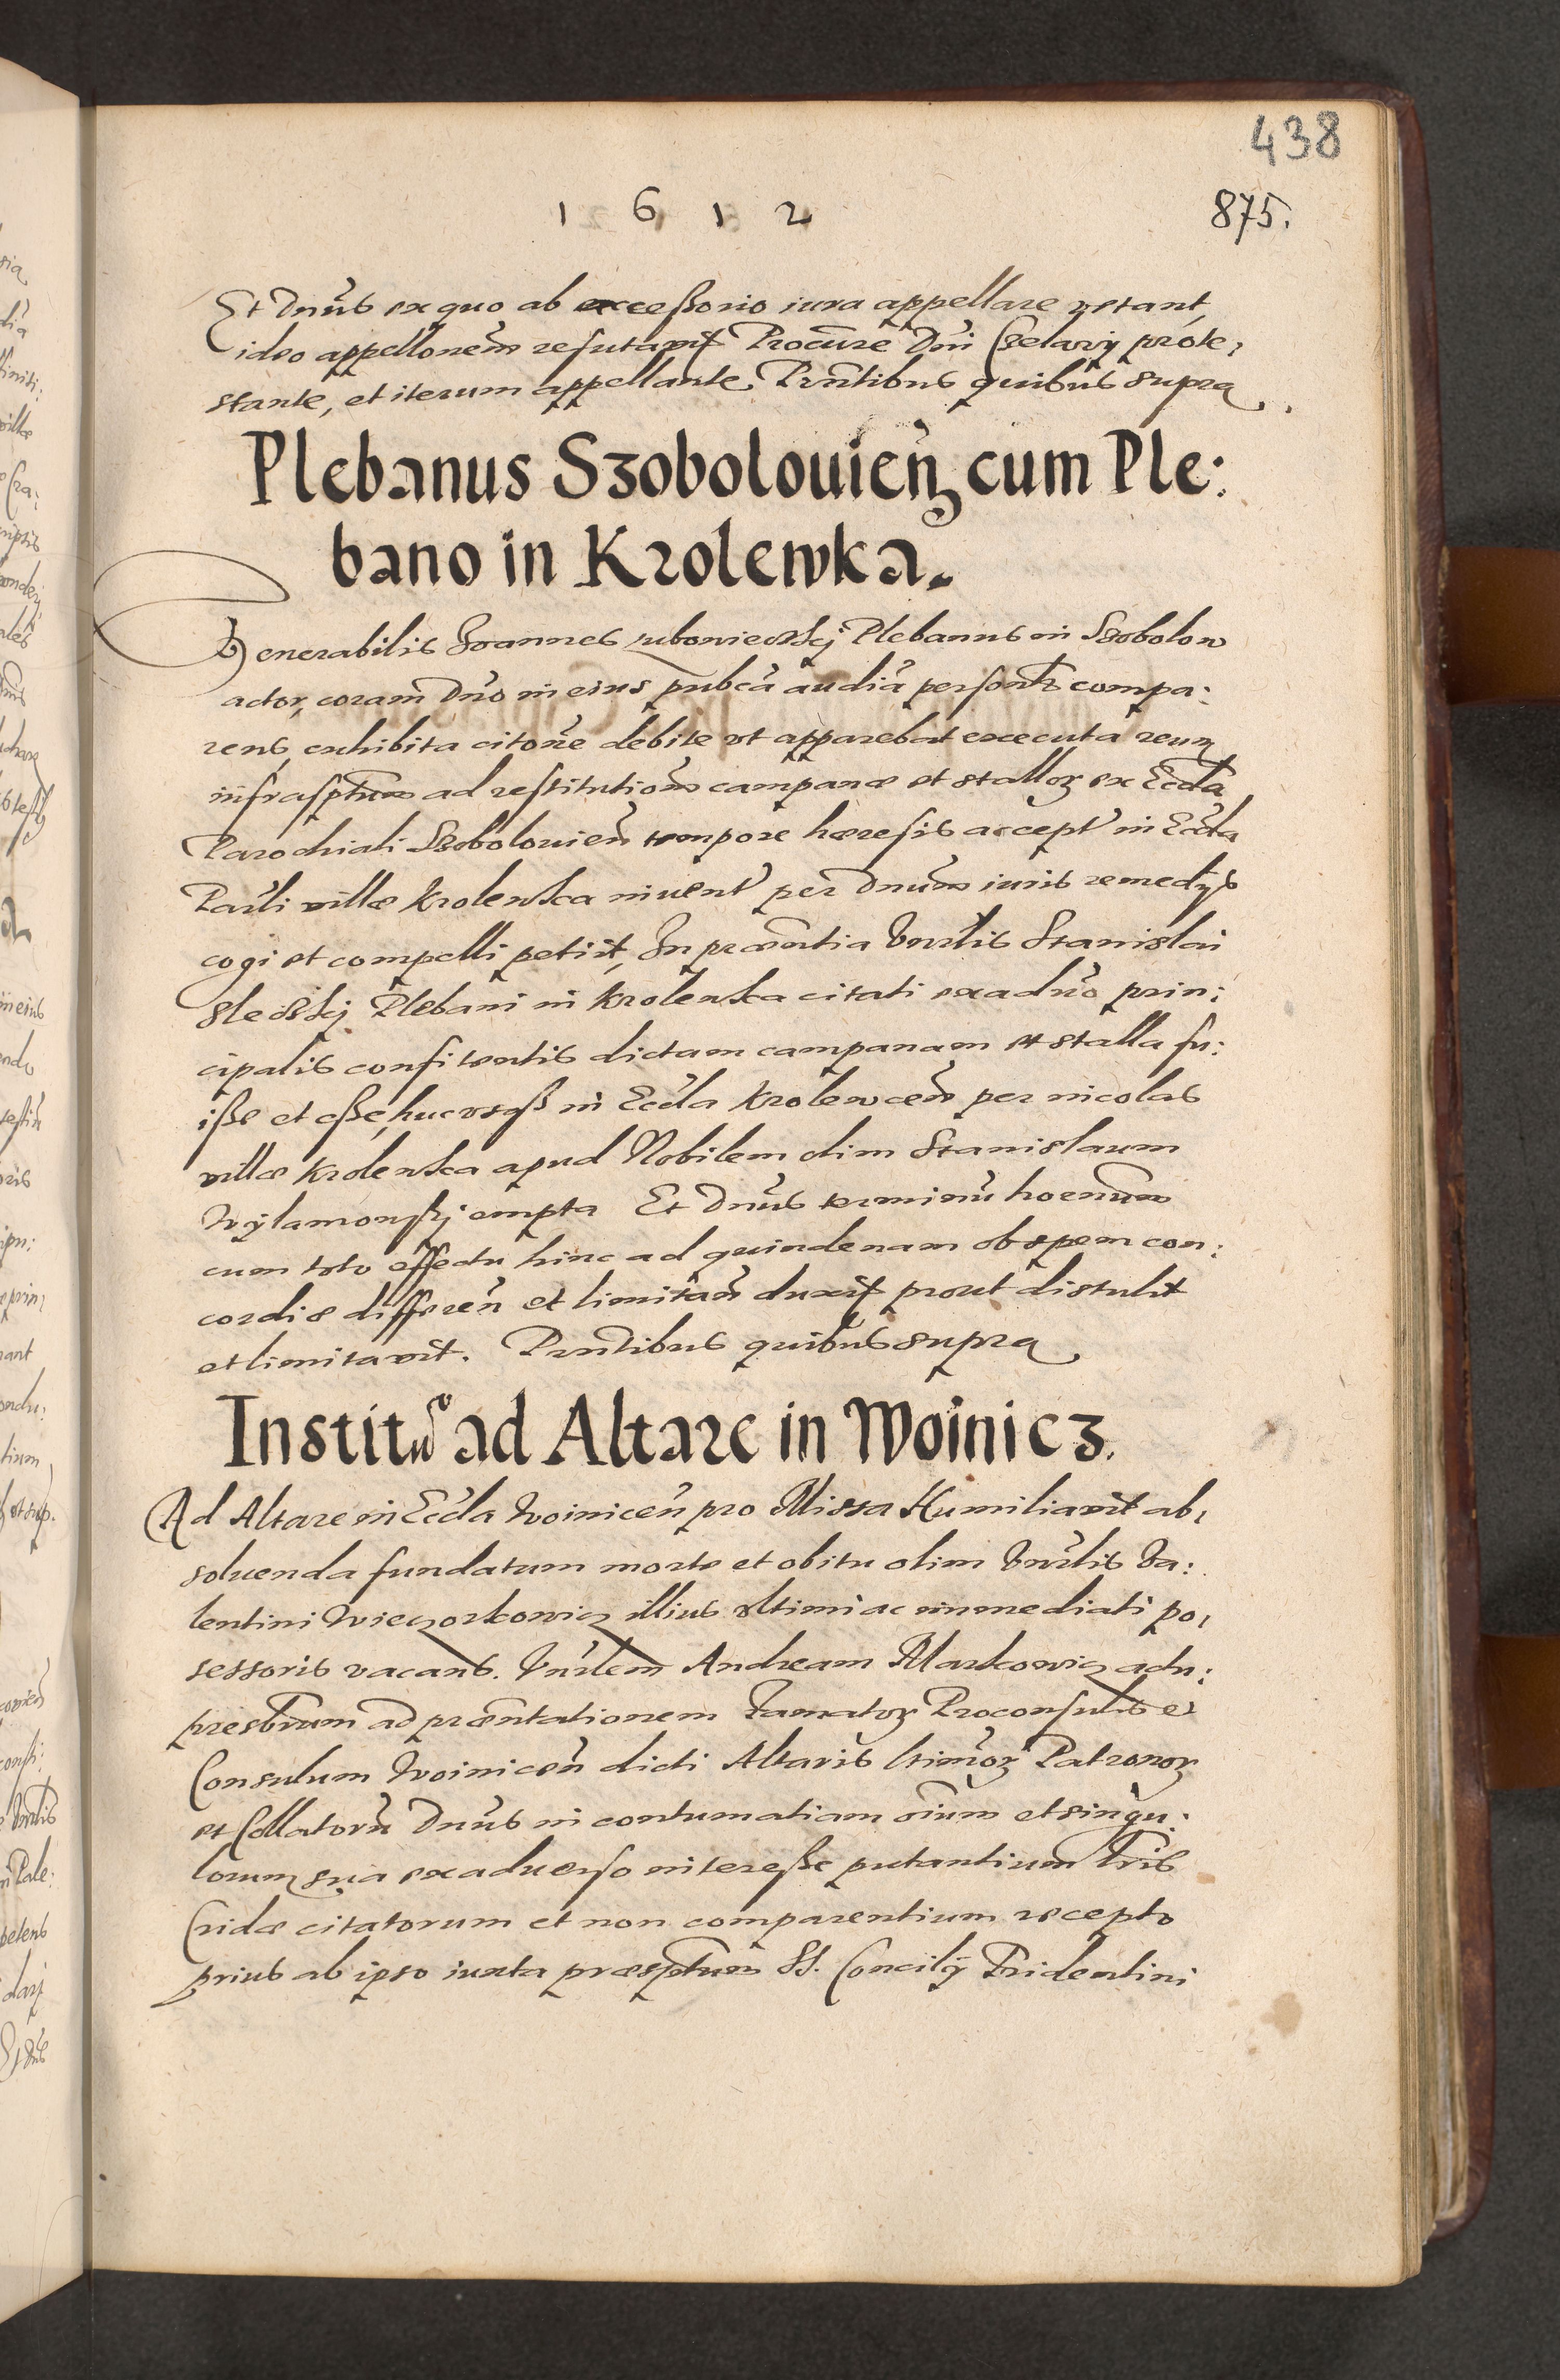 438
1 6 1 2
875.
Et Dnus ex quo ab accessorio iura appellare vetant,
ideo appellonem refutavit Procure Dni Cselavy prote:
stante, et iterum appellante. Prntibus quibus supra.
Plebanus Szobolouien cum Ple:
bano in Krolewka.
Venerabilis Joannes Plebanus in Szobolow
actor, coram Dno in eius pubca audia personlr compa:
rens, exhibita citone debite vt apparebat executa reum
infrasptum ad restitutionem campanæ et stallorum ex Eccla
Parochiali Szobolouien tempore hæresis accept in Eccla
Parli villæ Krolewka invent per Dnum iuris remedijs
cogi et compelli petijt, In præntia Vnrlis Stanislai
Plebani in Krolewka citati ex aduo prin:
cipalis confitentis dictam campanam et stalla fu:
isse et esse, hucusq in Eccla Krolewcen per incolas
villæ Krolewka apud Nobilem olim Stanislaum
Wylamowskj empta Et Dnus terminu hoernum
cum toto effectu hinc ad quindenam ob spem con:
cordiæ differen et limitan duxit prout distulit
et limitavit. Prntibus quibus supra
Institu° ad Altare in Woinicz.
Ad Altare in Eccla Woinicen pro Missa Humiliavit ab:
soluenda fundatum morte et obitu olim Vnrlis Va:
lentini Wieczorkowicz illius vltimi ac immediati po:
sessoris vacans. Vnrlem Andream Markowicz actu:
presbrum ad præntationem Famatorum Proconsulis et
Consulum Woinicen dicti Altaris ltimorum Patronorum
et Collatoru Dnus in contumatiam oium et singu:
lorum sua ex aduerso interesse putantium Lris
Cridæ citatorum et non comparentium recepto
prius ab ipso iuxta præsptum SS. Concilij Tridentini